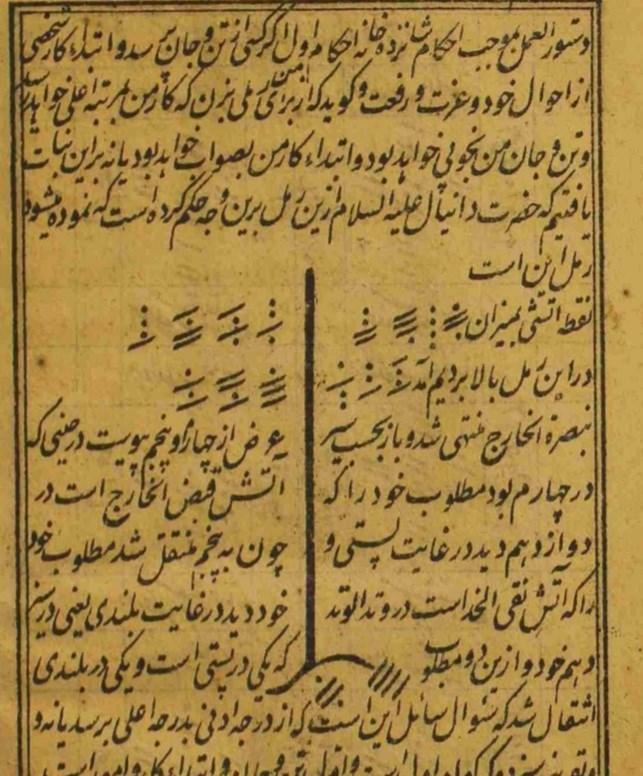 دستور العمل بموجب احکام شانزده خانه احکام اول اگر کسی از تن و جان پرسد و ابتداء کار شخصی
از احوال خود و عزت و رفعت و گوید که از برای من رملی بزن که کار من بمرتبه اعلی خواهد رسید
و تن و جان من بخوبی خواهد بود و ابتداء کار من بصواب خواهد بود یا نه براین نبات
یافتیم که حضرت دانیال علیه السلام ازین رمل برین وجه حکم کرده است که نموده میشود
رمل این است
نقطه آتشی بمیزان
در این رمل بالا بردیم آمد
نبصرة الخارج منتهی شد و باز بحسب سیر
عرض از چهارم و پنجم پیوست در حینی که
در چهارم بود مطلوب خود را که
آتش قبض الخارج است در
دوازدهم دید در غایت پستی و
چون به پنجم منتقل شد مطلوب خود
را که آتش نقی الخد است در وتد الوتد
خود دید در غایت بلندی یعنی در
دهم خود و ازین دو مطلوب
که یکی در پستی است و یکی در بلندی
انتقال شد که سئوال سائل این است که از درجه ادنی بدرجه اعلی برسد یا نه و